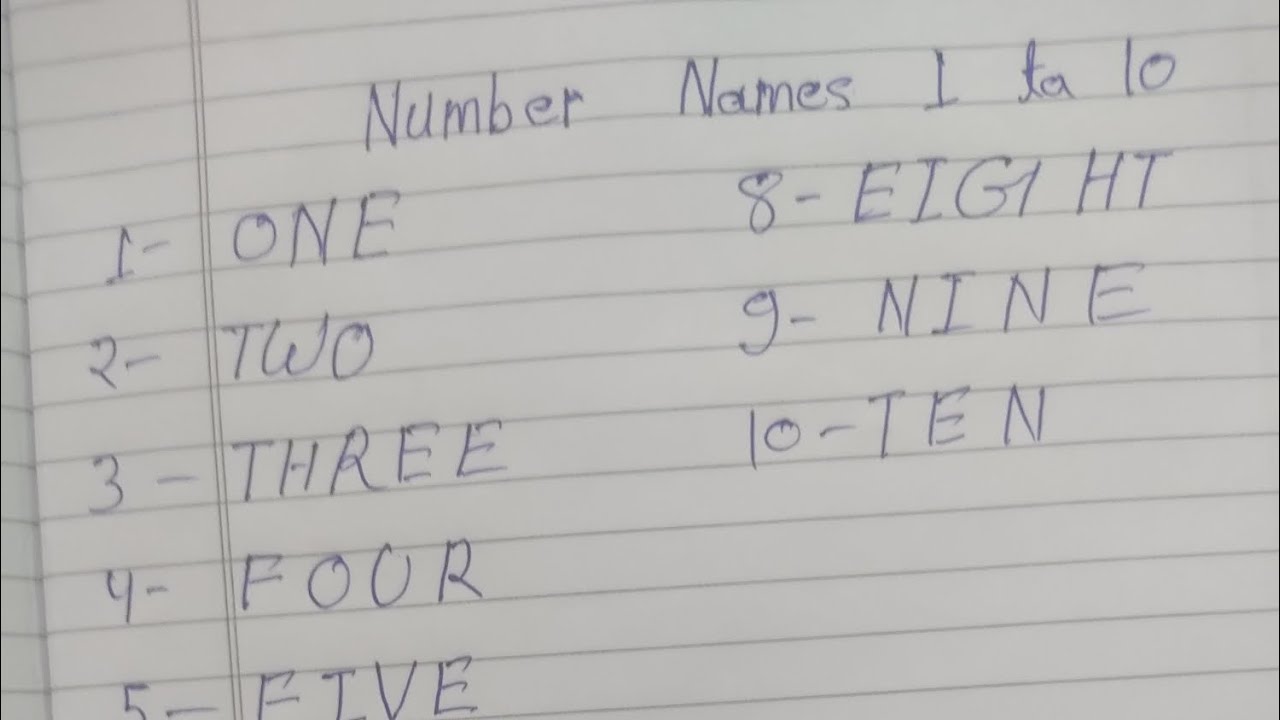 Number Names 1 ta 10
1- ONE
2- TWO
3- THREE
4- FOUR
5- FIVE
8- EIGHT
9- NINE
10- TEN